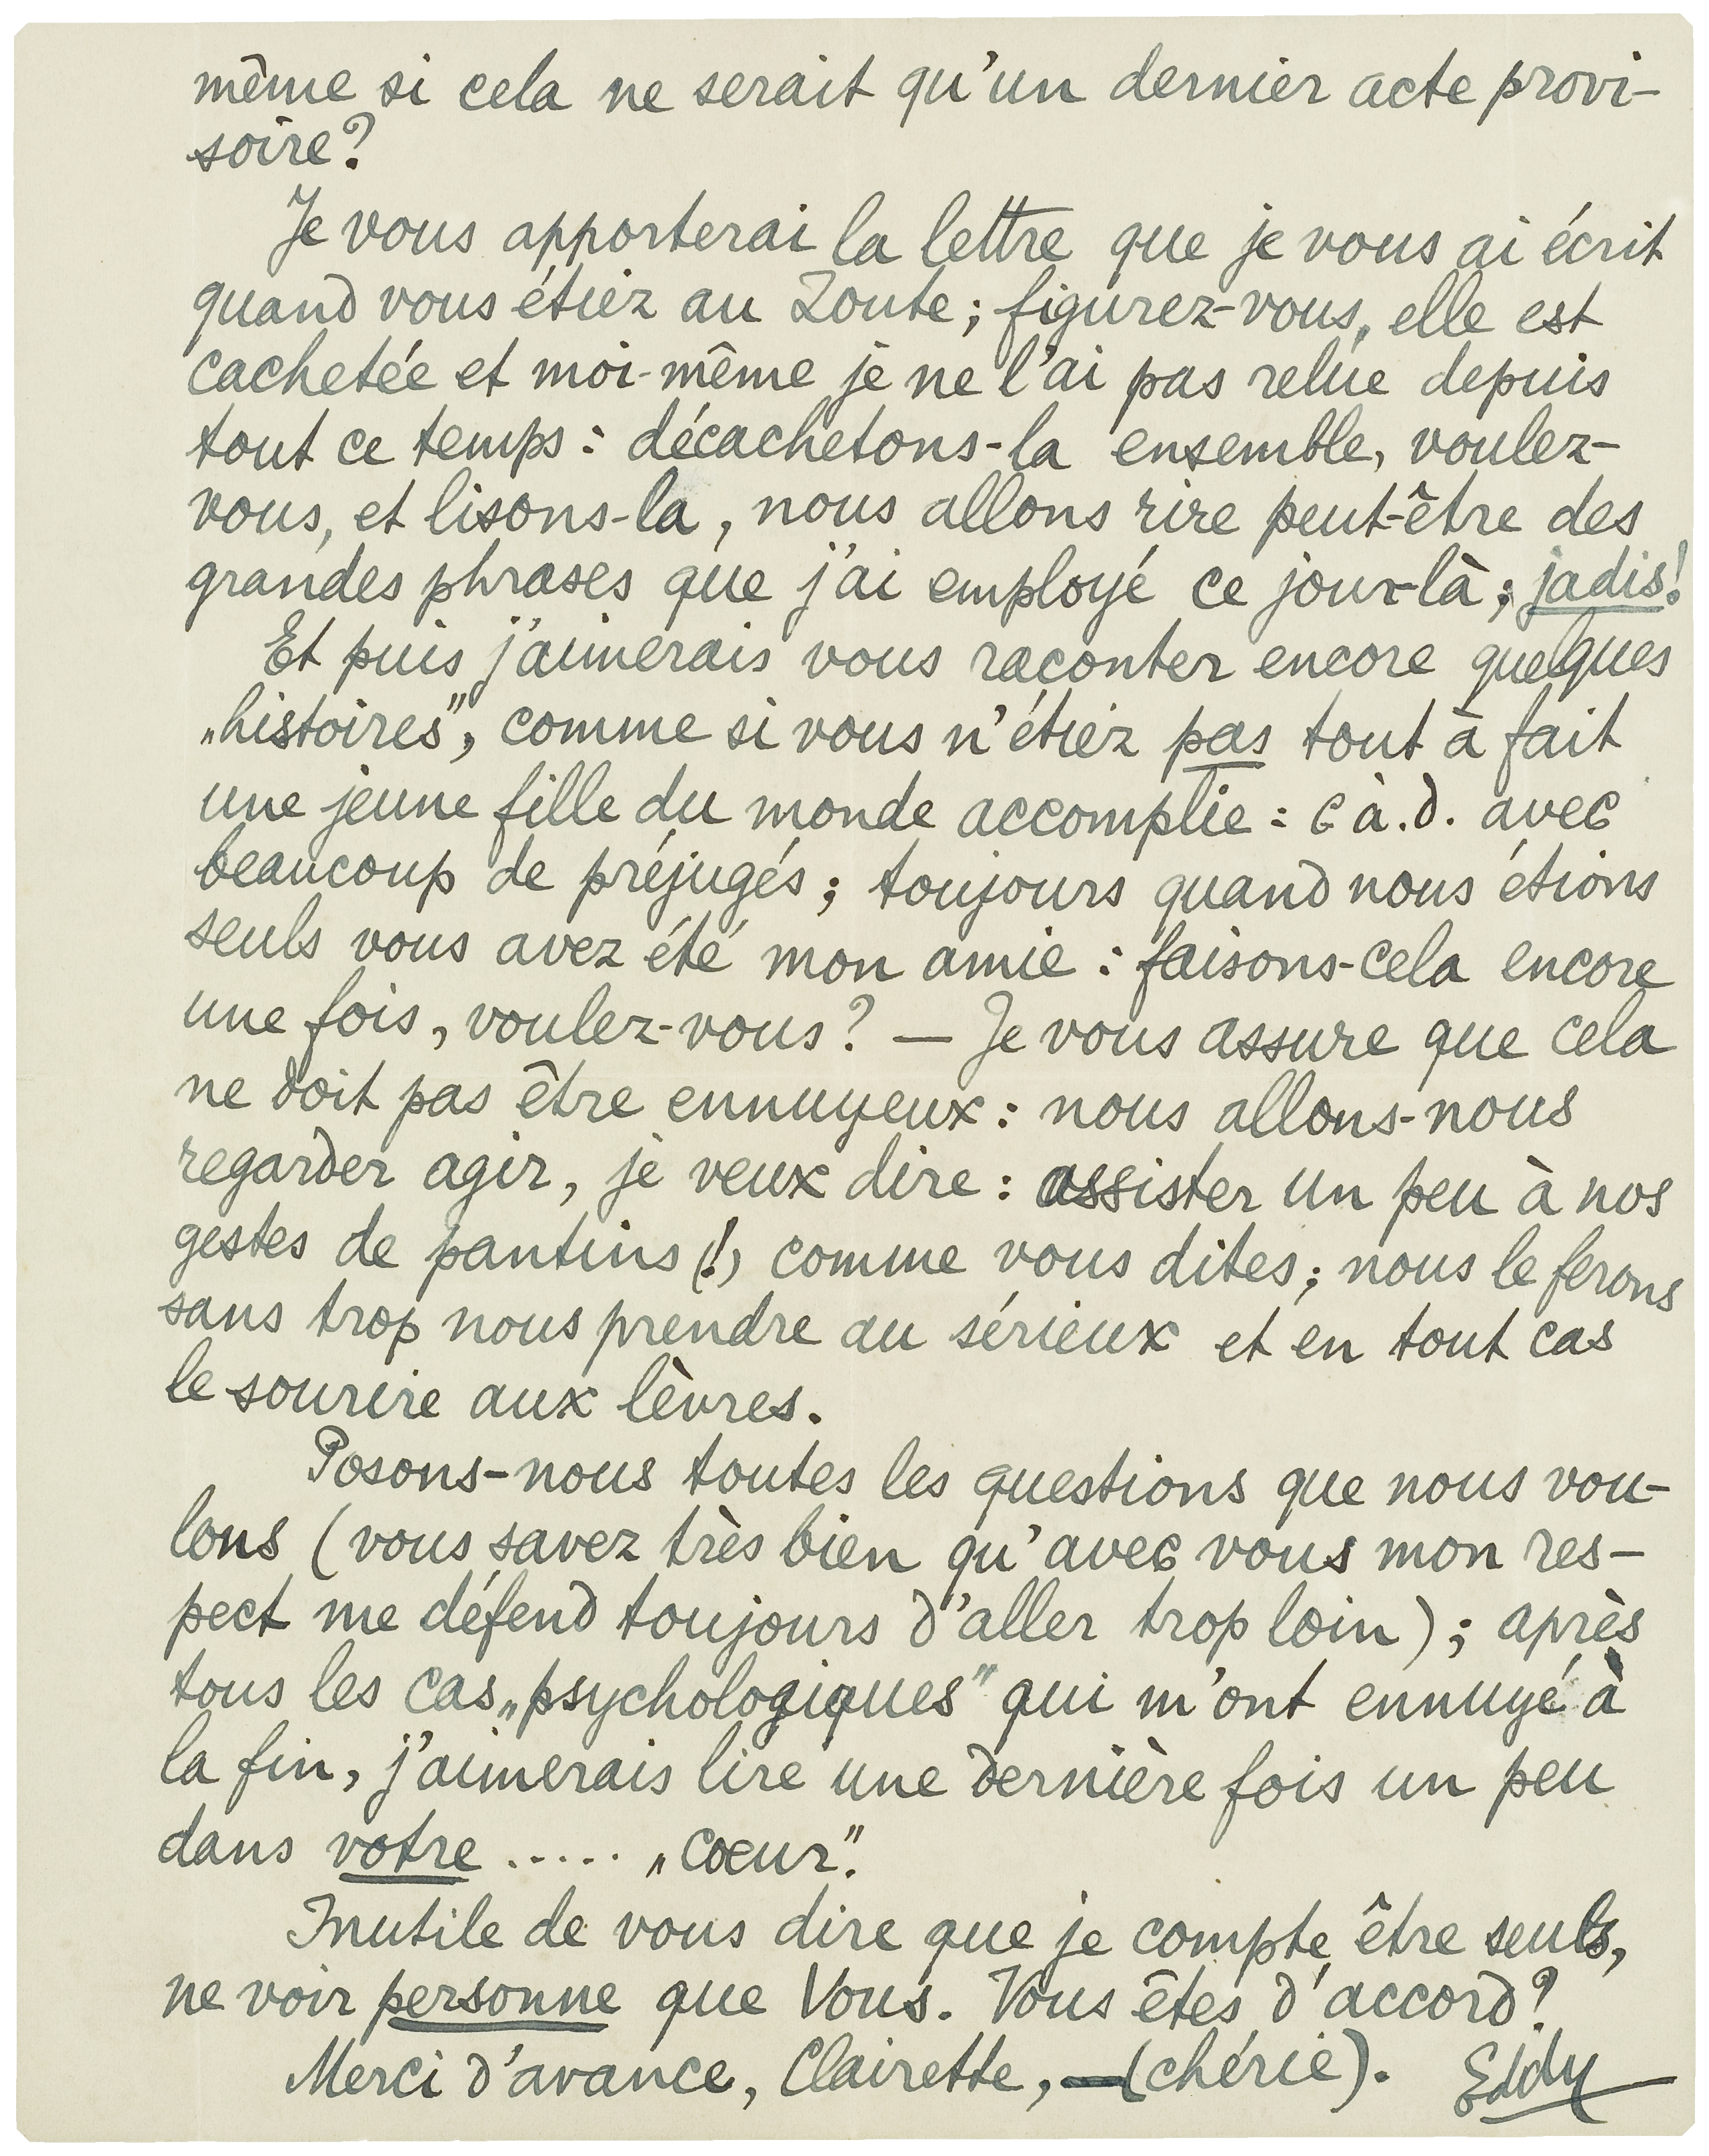 même si cela ne serait qu'un dernier acte provi-
soire?
Je vous apporterai la lettre que je vous ai écrit
quand vous étiez au Zoute; figurez-vous, elle est
cachetée et moi-même je ne l'ai pas relue depuis
tout ce temps: décachetons-la ensemble, voulez-
vous, et lisons-la, nous allons rire peut-être des
grandes phrases que j'ai employé ce jour-là; jadis!
Et puis j'aimerais vous raconter encore quelques
„histoires", comme si vous n'étiez pas tout à fait
une jeune fille du monde accomplie: c à.d. avec
beaucoup de préjugés; toujours quand nous étions
seuls vous avez été mon amie: faisons-cela encore
une fois, voulez-vous? — Je vous assure que cela
ne doit pas être ennuyeux: nous allons-nous
regarder agir, je veux dire: assister un peu à nos
gestes de pantins (!) comme vous dites; nous le ferons
sans trop nous prendre au sérieux et en tout cas
le sourire aux lèvres.
Posons-nous toutes les questions que nous vou-
lons (vous savez très bien qu'avec vous mon res-
pect me défend toujours d'aller trop loin); après
tous les cas „psychologiques" qui m'ont ennuyé à
la fin, j'aimerais lire une dernière fois un peu
dans votre ..... „cœur".
Inutile de vous dire que je compte être seuls,
ne voir personne que Vous. Vous êtes d'accord?
Merci d'avance, Clairette, — (chérie). Eddy